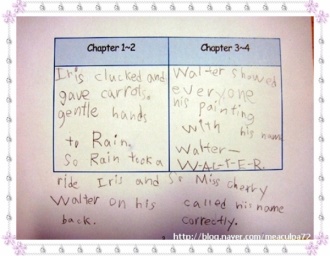 Chapter 1~2
Iris clucked and
gave carrots.
gentle hands
to Rain.
So Rain took a
ride Iris and
Walter on his
back.
Chapter 3~4
Walter showed
everyone
his painting
with his name
Walter—
W-A-L-T-E-R.
So Miss cherry
called his name
correctly.
http://blog.naver.com/meaculpa72